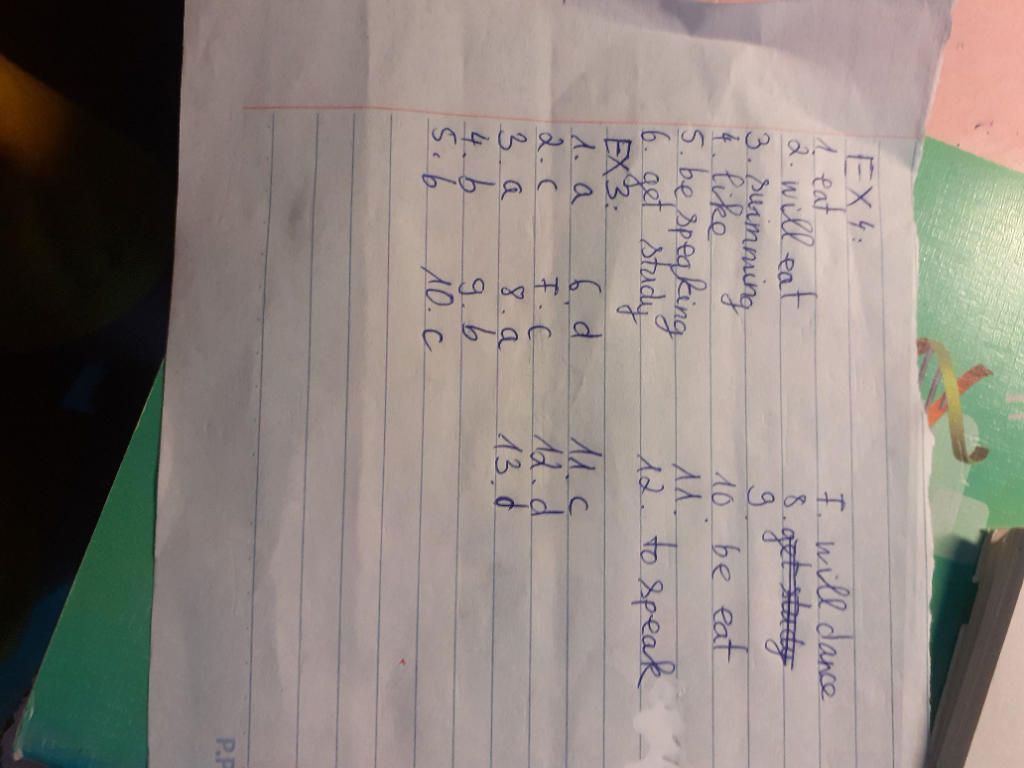 EX 4.
1. eat 7. will dance
2. will eat 8. get study
3. swimming 9.
4. like 10. be eat
5. be speaking 11.
6. get study 12. to speak
EX 3.
1. a 6. d 11. c
2. c 7. c 12. d
3. a 8. a 13. d
4. b 9. b
5. b 10. c
P.P